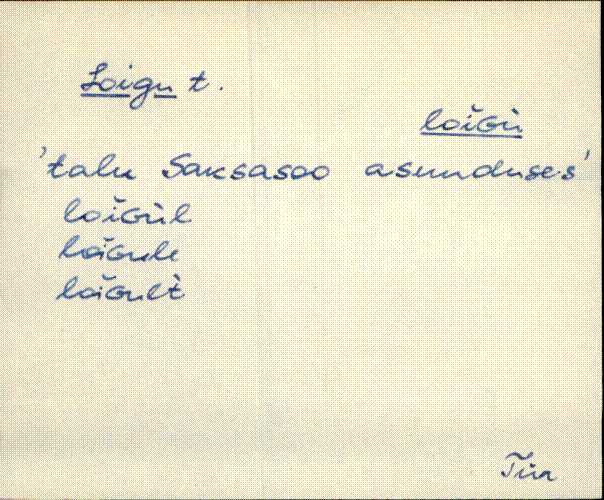 Loigu t.
loiGù
'talu Saksasoo asunduses'
loiGùl
loiGule
loiGult
Tür